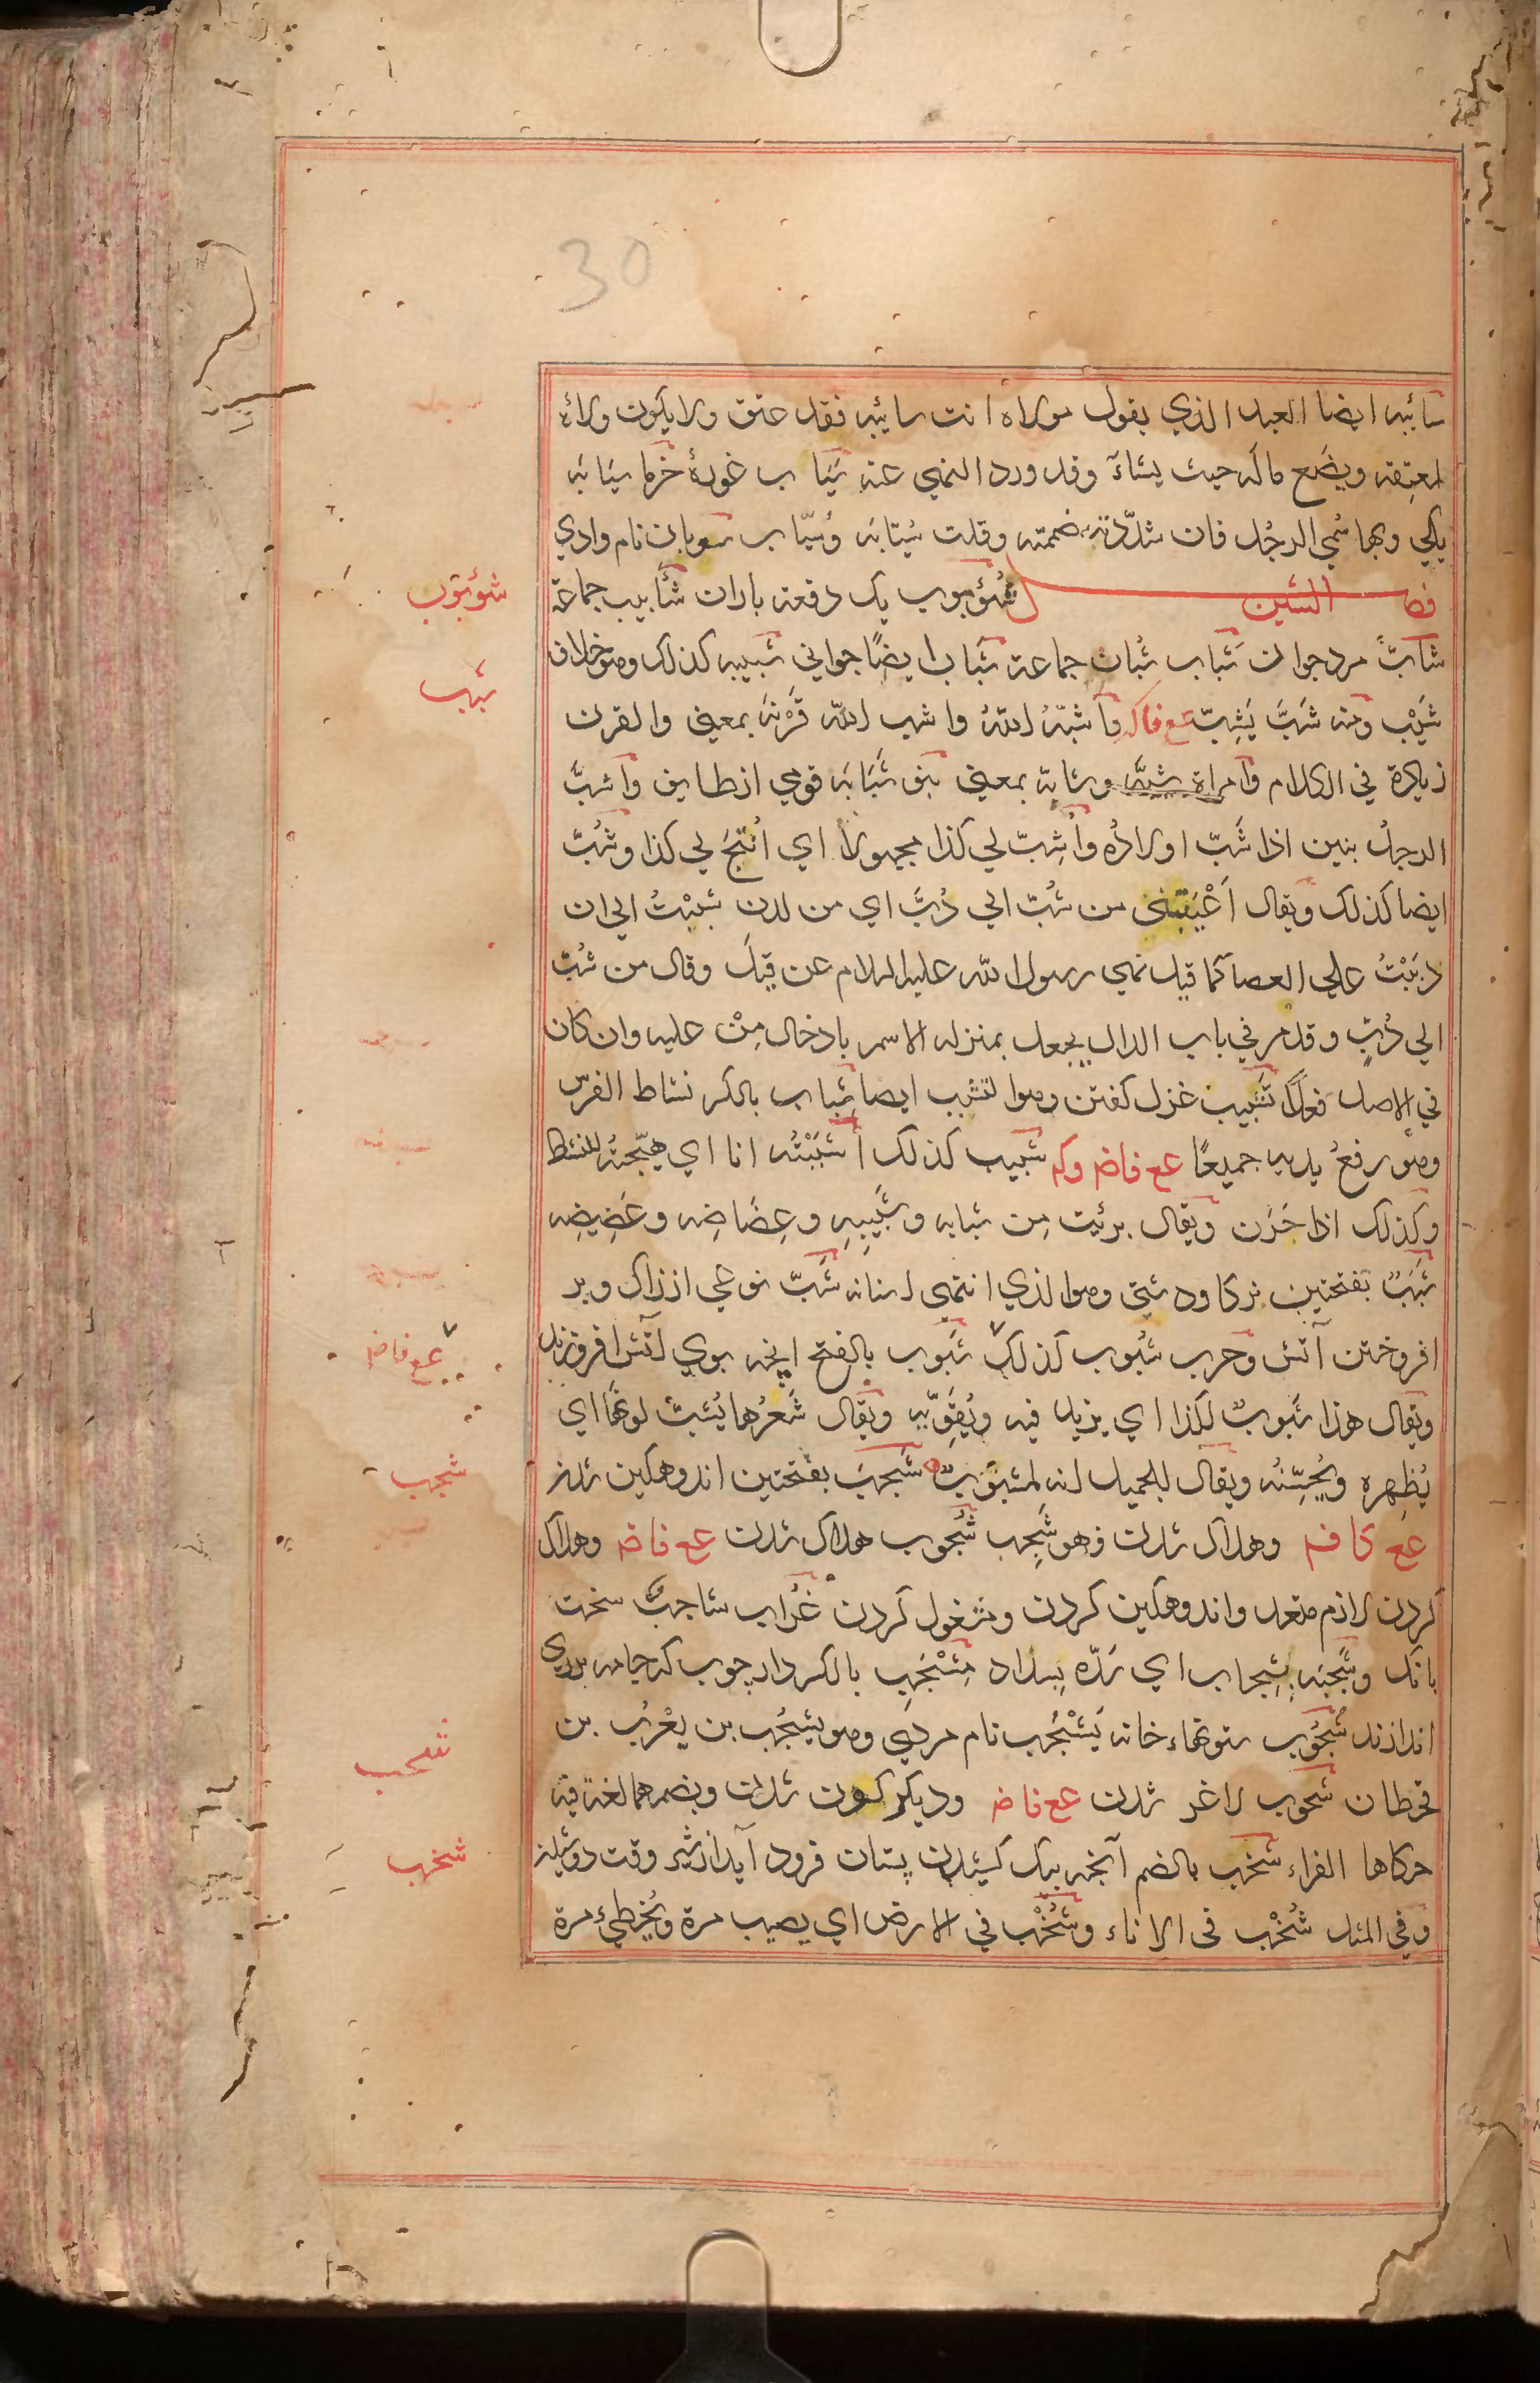 30
سائبه ايضا العبد الذي يقول مولاه انت سائبه فقد عتق ولا يكون ولاؤه
لمعتِقه ويضَع ماله حيث يشاءَ وقد ورد النهي عنه سَيَاب غورهٔ خرما سَيَابَه
يكي وبها سُمي الرجُل فان شدّدته ضممته وقلت سُيّابَه وسُيّاب سوبان نام وادي
فصل الشين شُؤبوب يک دفعه باران شآبيب جماعة
شابّ مرد جوان شَباب شُبّان جماعة شَباب ايضًا جواني شبيبه كذلک وهو خلاف
شَيْب ومنه شَبَّ يَشِبّ عع فاكـ واَشبّهُ اللهُ واشب الله قَرْنَهَ بمعني والقرن
زيادة في الكلام وامراة شبّه وشابة بمعني بنو شَبَابَه قومي از طايف واشبَّ
الرجلُ بنين اذا شَبّ اولادُه واُشِبّ لي كذا مجهولا اي اُتِيحَ لي كذا وشُبَّ
ايضا كذلک ويقال اَعْيَيتني من شُبّ الي دُبَّ اي من لدن شَبَبْتُ الي ان
دبَبْتُ علي العصا كما قيل نهي رسول الله عليه السلام عن قيلَ وقال من شُبٍّ
الي دُبٍّ وقد مر في باب الدال يجعل بمنزله الاسم بادخال مِنْ عليه وان كان
في الاصل فعلًا تشبيب غزل گفتن وهو التشبب ايضا شِباب بالكسر نشاط الفرس
وهو رفعُ يديه جميعًا عع فاضـ وكـ شبيب كذلک اَشبَبْتُه انا اي هيّجتُه للنشاط
وكذلک اذا حَرَن ويقال برئت مِن شِبابه وشَبِيبِهِ وعِضَاضِه وعَضِيضِه
شَبَبٌ بفتحتين نر گاو دشتي وهو الذي انتهي اسنانه شَبّ نوعي از زاک وبر
افروختن آتش وحرب شُبوب كذلک شَبوب بالفتح آنچه بوي آتش افروزند
ويقال هذا شَبوبٌ لكذا اي يزيد فيه ويُقَوِّيه ويقال شَعرُها يُشبّ لونَها اي
يُظهِره ويُحَسِّنُه ويقال للجميل انه لمشبوبٌ شَجَبَ بفتحتين اندوهگين شدن
عع كا فـ وهلاک شدن فهو شَجِب شُجوب هلاک شدن عع فاضـ وهلاک
كردن لازم متعد واندوهگين كردن ومشغول كردن غُرَاب شاجبٌ سخت
بانک وشَجَبَه بشِجاب اي سَدّه بسداد مِشْجَب بالكسر دار چوب كه جامه بروي
اندازند شُجُوب ستونهاء خانه يَشْجُب نام مردي وهو يشجُب بن يعْرُب بن
قحطان شحوب لاغر شدن عع فاضـ وديگر گون شدن وبضمهما لغة فيه
حكاها الفراء شخب بالضم آنچه بيک كشيدن پستان فرود آيد از شير وقت دوشيدن
وفي المثل شُخْب في الاناء وشُخْب في الارض اي يصيب مرة ويُخطيُ مرة
شؤبوب
شبب
عع فاضـ
شجب
شحب
شخب